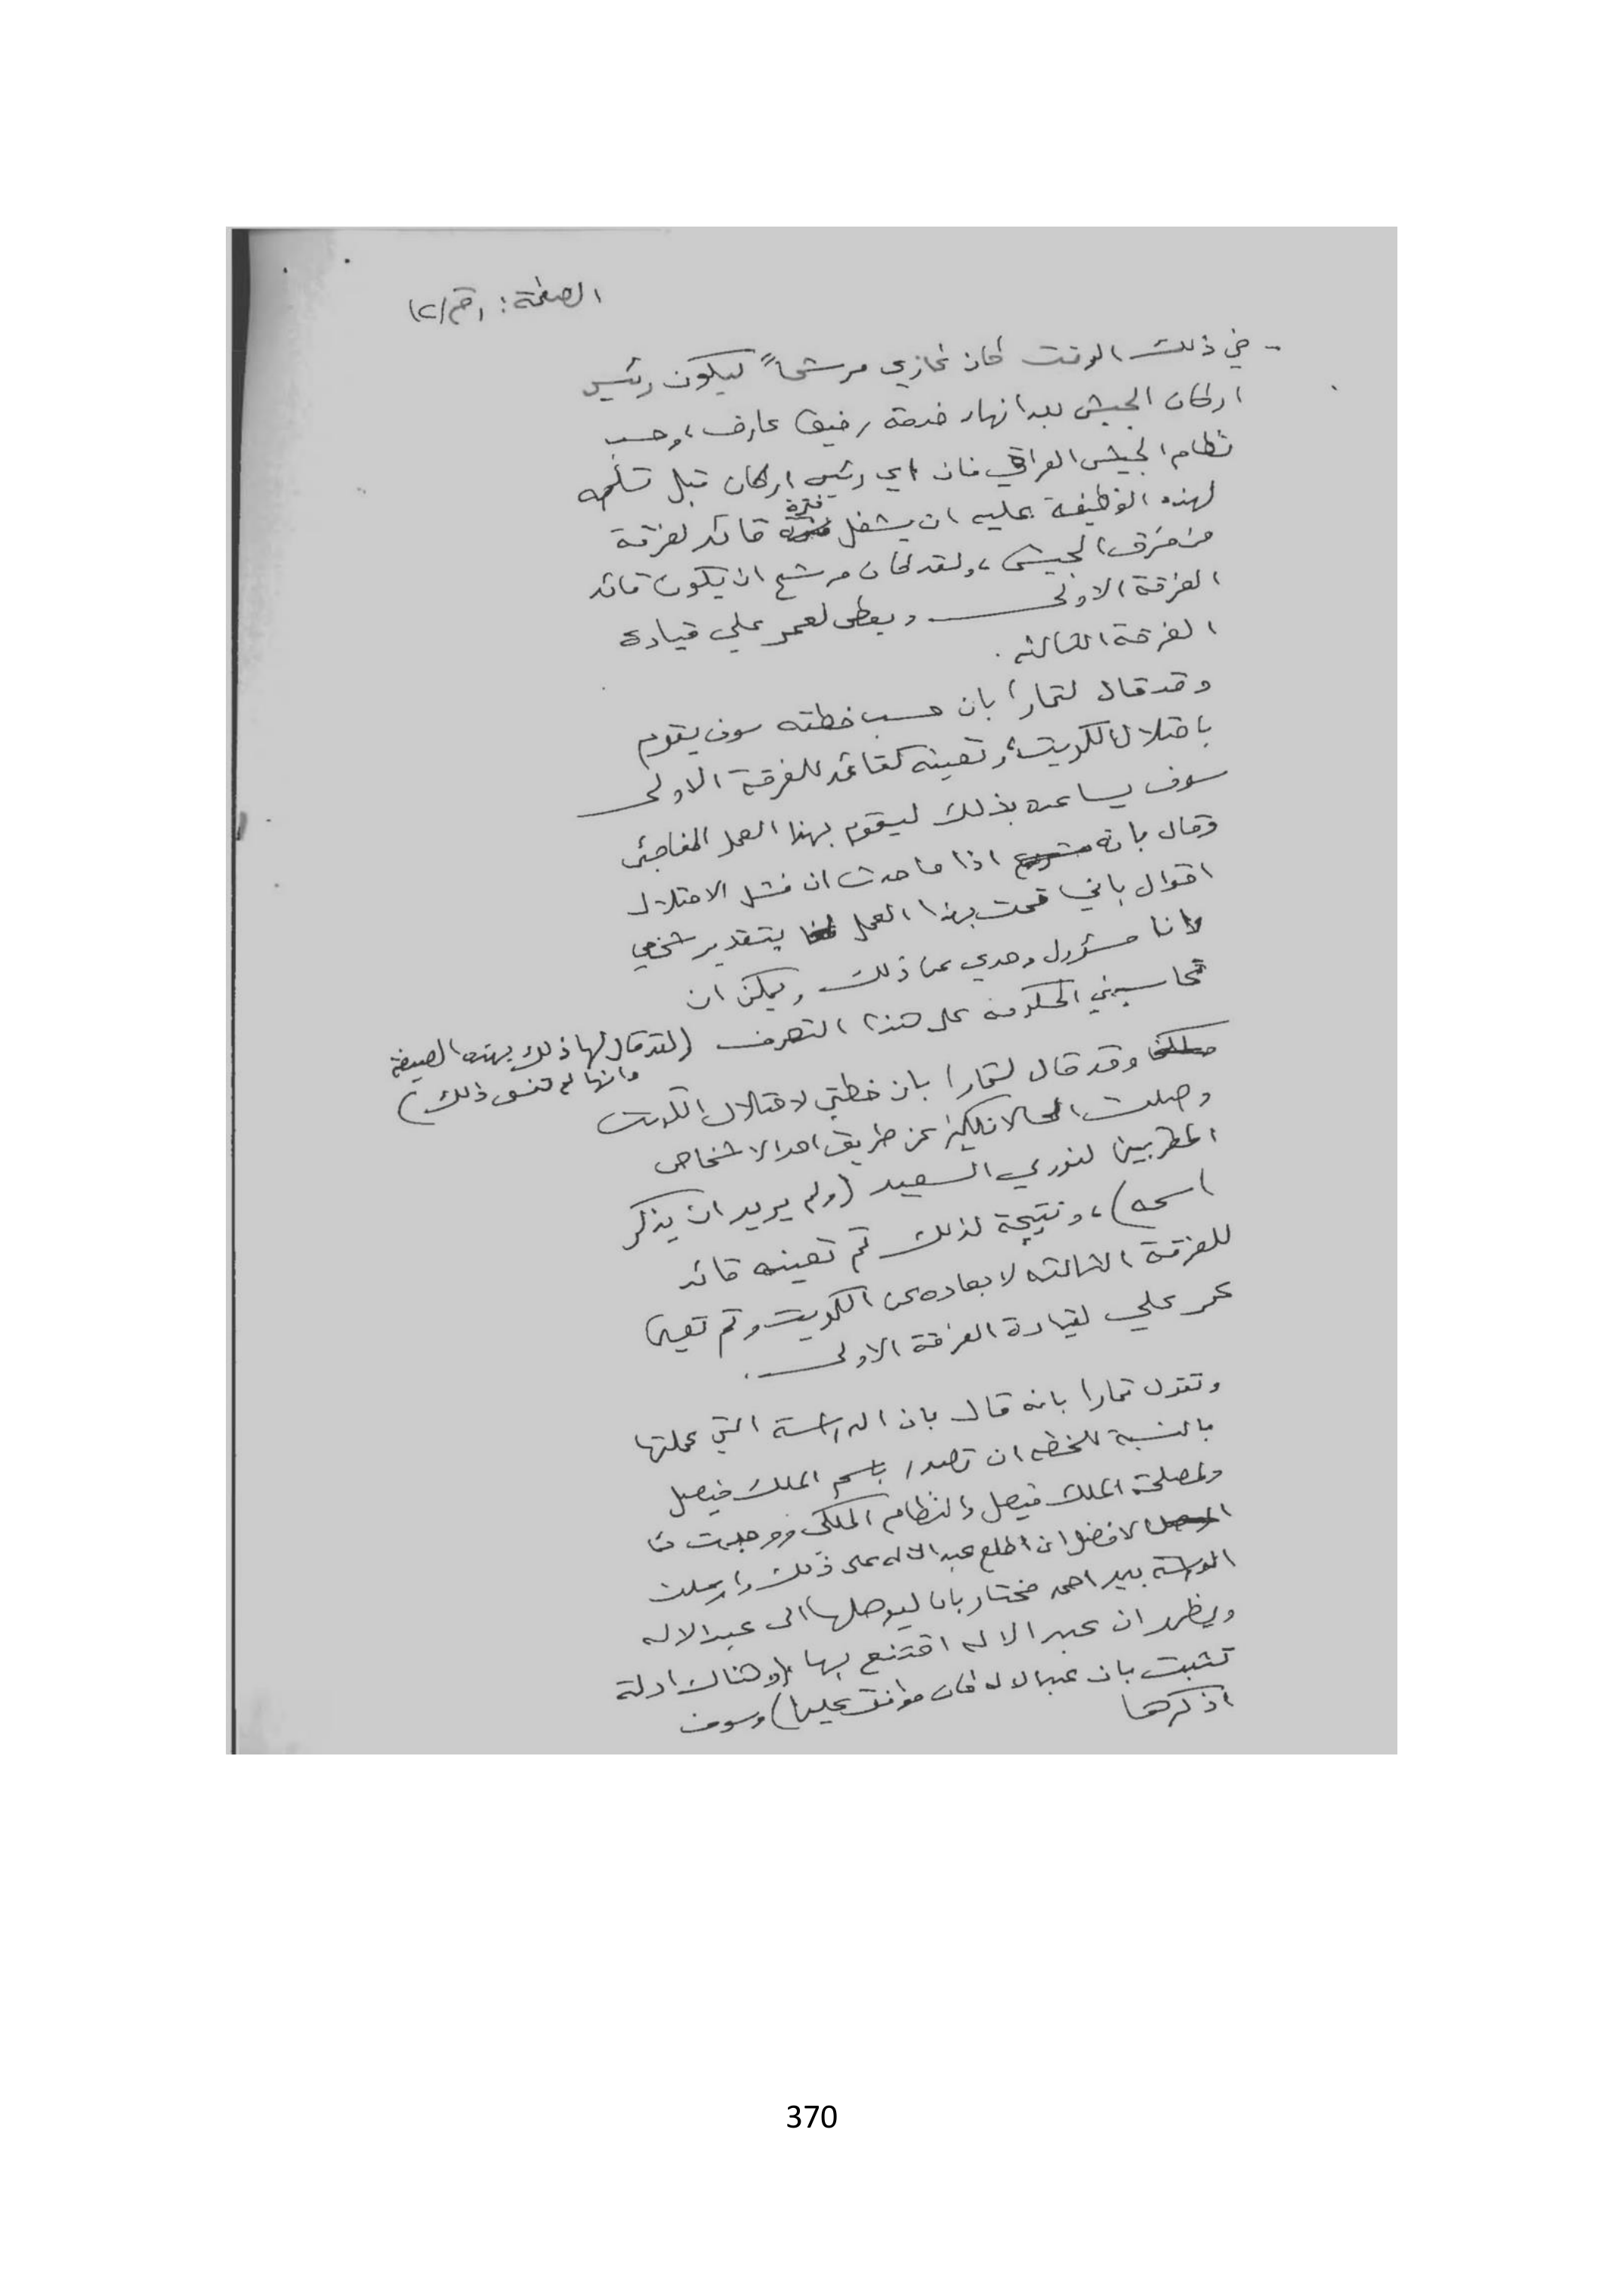 الصفحة: رقم /٢١
- في ذلك الوقت كان غازي مرشحاً ليكون رئيس
اركان الجيش بعد انهاء خدمة رفيق عارف، وحسب
نظام الجيش العراقي فان اي رئيس اركان قبل تسلمه
لهذه الوظيفة عليه ان يشغل فترة قائد لفرقة
من فرق الجيش، ولقد كان مرشح ان يكون قائد
الفرقة الاولى ويعطى لعمر علي قيادة
الفرقة الثالثه.
وقد قال لتمارا بان حسب خطته سوف يقوم
باحتلال الكويت، وتعينه كقائد للفرقة الاولى
سوف يساعده بذلك ليقوم بهذا العمل المفاجئ
وقال بانه اذا ما حدث ان فشل الاحتلال
اقول باني قمت بهذا العمل بتقدير شخصي
وانا مسؤول وحدي عن ذلك ويمكن ان
تحاسبني الحكومة على هذا التصرف (لقد قال لها ذلك بهذه الصيغة
وانها لم تنس ذلك)
وقد قال لتمارا بان خطتي لاحتلال الكويت
وصلت الى الانكليز عن طريق احد الاشخاص
المقربين لنوري السعيد (ولم يريد ان يذكر
اسمه)، ونتيجة لذلك تم تعينه قائد
للفرقة الثالثه لابعاده عن الكويت وتم تعين
عمر علي لقيادة الفرقة الاولى.
وتقول تمارا بانه قال بان الدراسة التي عملتها
بالنسبة للخطه ان تصدر باسم الملك فيصل
ولمصلحة الملك فيصل والنظام الملكي ووجدت
الافضل ان اطلع عبد الاله على ذلك وارسلت
الدراسة بيد احمد مختار بابان ليوصلها الى عبد الاله
ويظهر ان عبد الاله اقتنع بها (وهناك ادلة
تثبت بان عبد الاله كان موافق عليها) وسوف
اذكرها
370